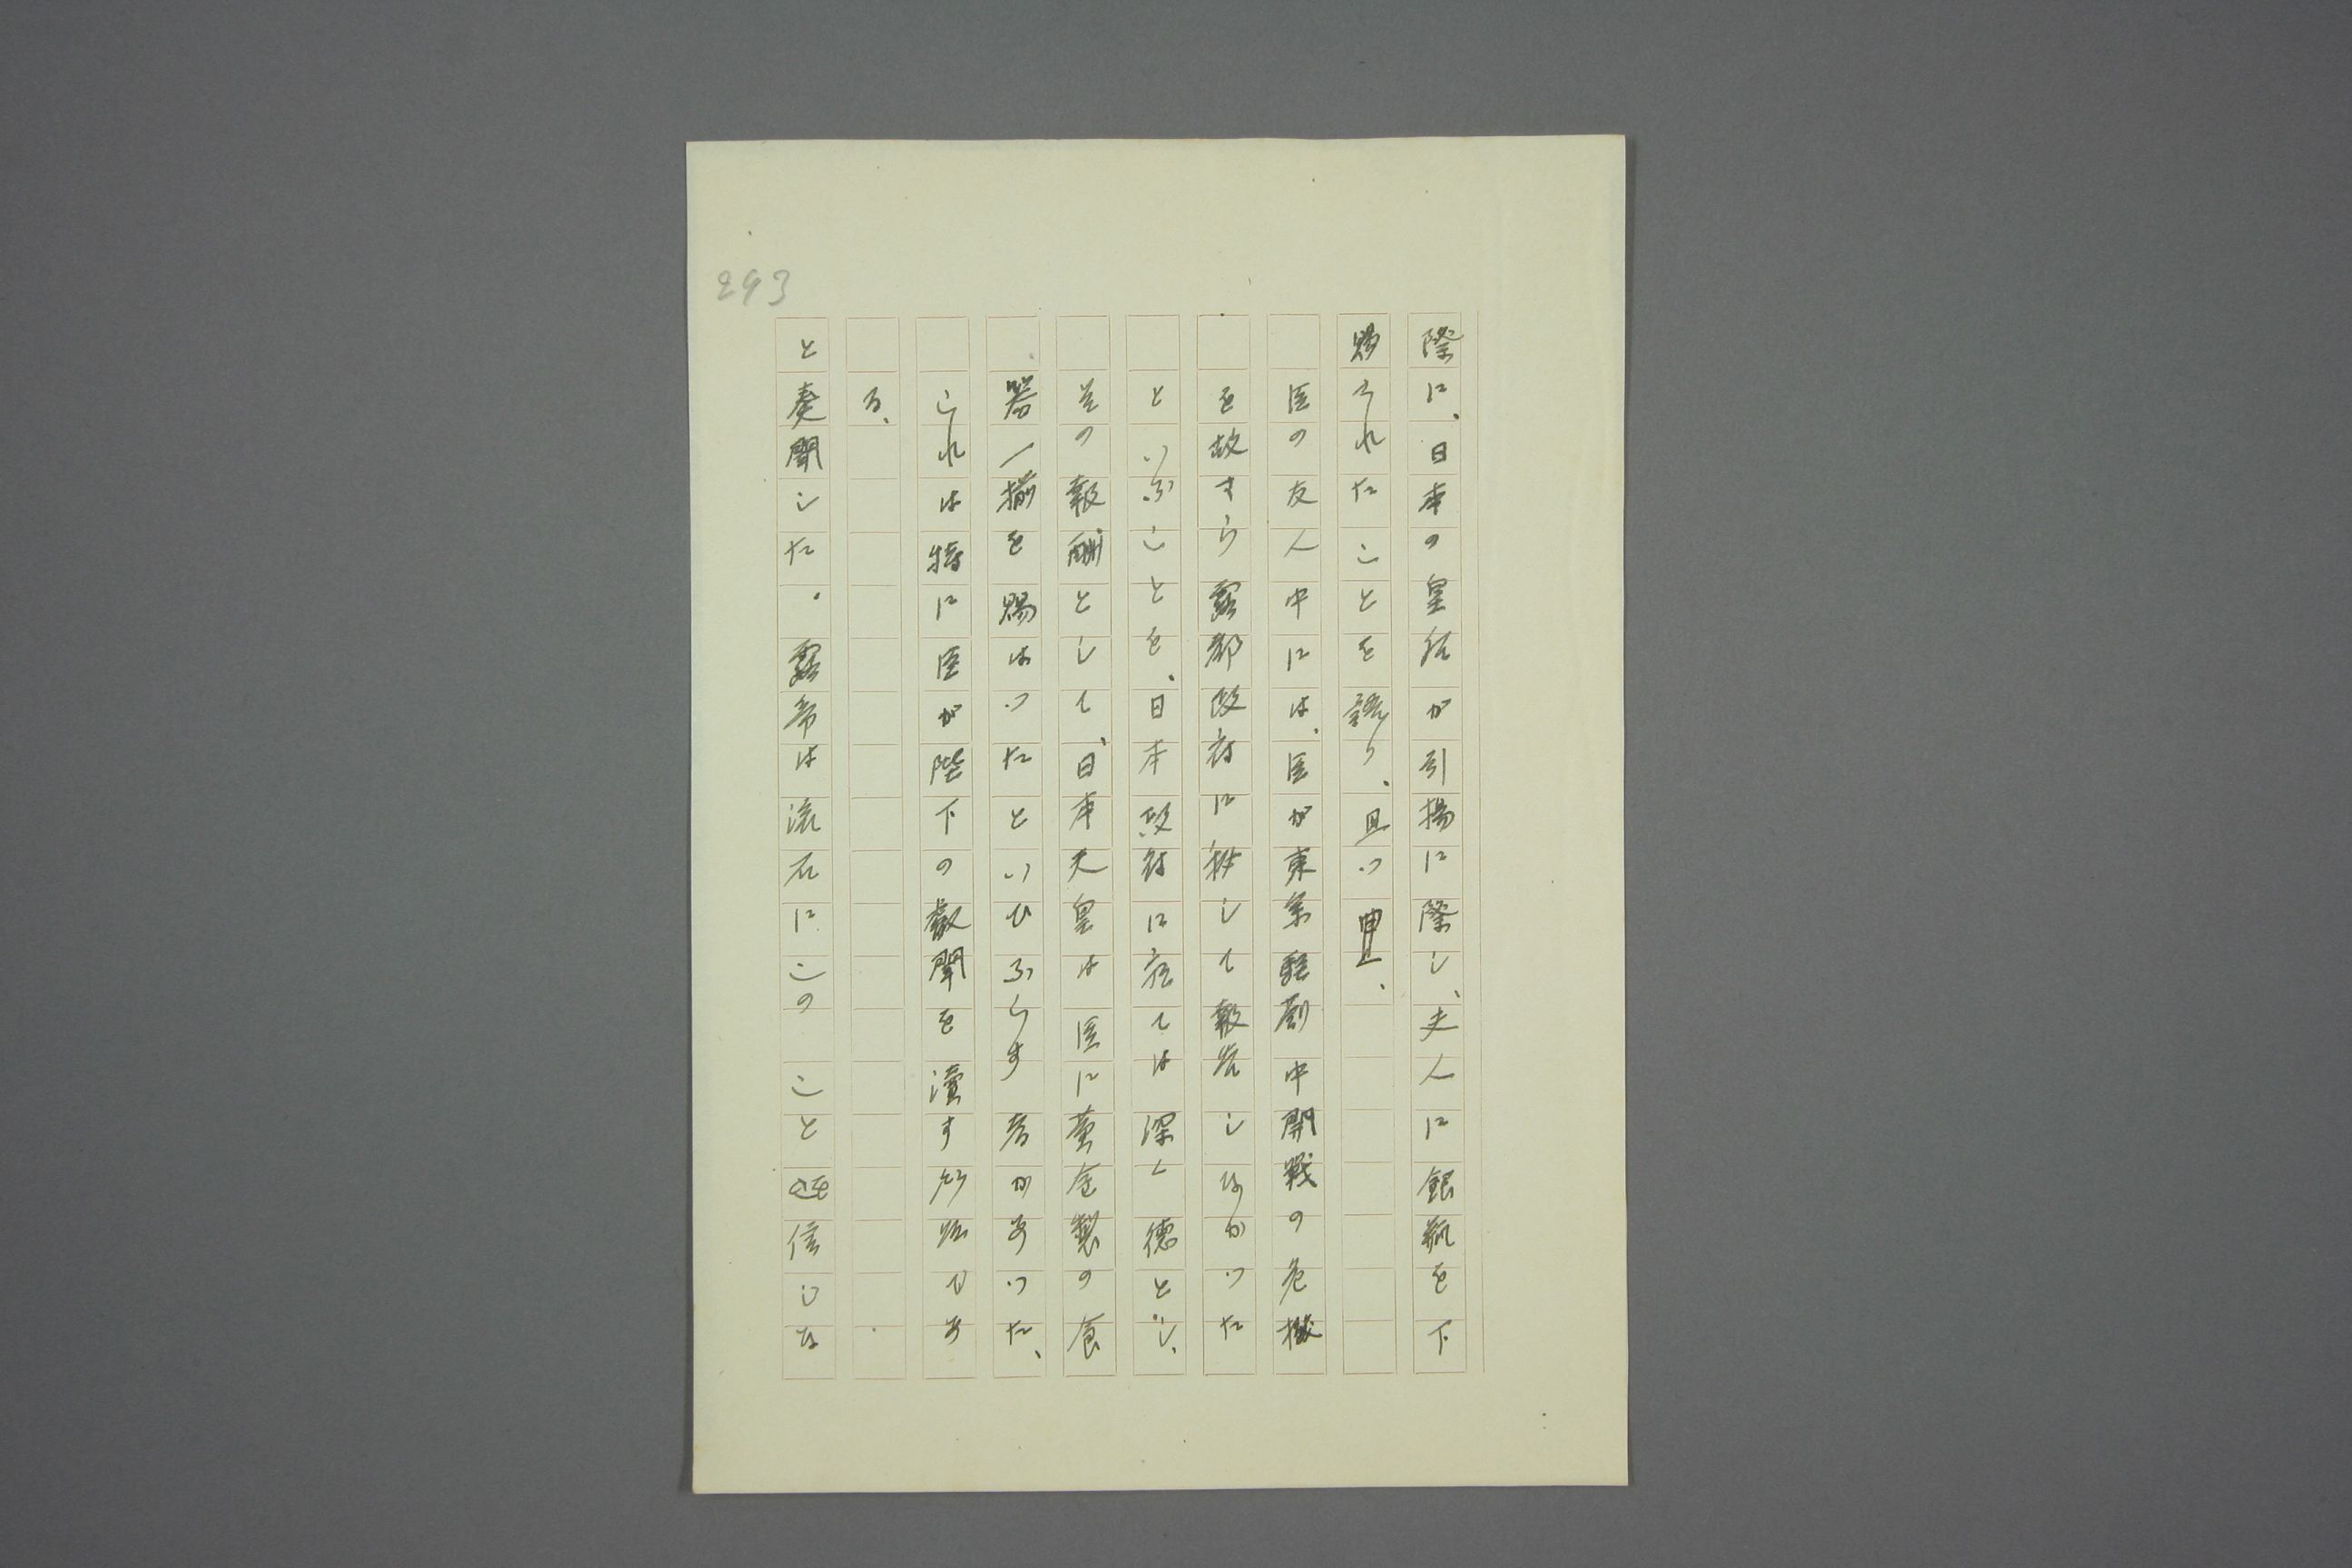 293
際に、日本の皇后が引揚に際し、夫人に銀瓶を下
賜られたことを誇り、且つ
臣の友人中には、臣が東京駐剳中開戦の危機
を故すら露都政府に対して報告しなかつた
といふことを、日本政府に於ては深く徳とし、
その報酬として、日本天皇は臣に黄金製の食
器一揃を賜はつたといひふらす者があつた、
これは特に臣が陛下の叡聞を瀆す所以であ
る、
と奏聞した。露帝は流石にこのことを信じな